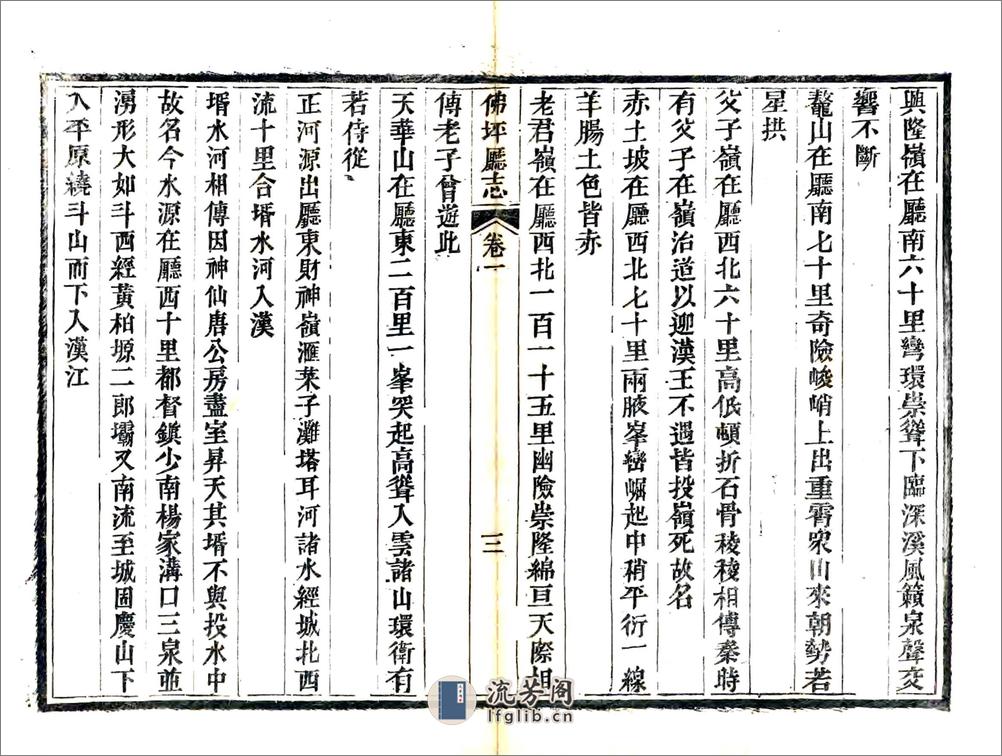 興隆嶺在廳南六十里彎環崇聳下臨深溪風籟泉聲交
響不斷
鼇山在廳南七十里奇險峻峭上出重霄衆山來朝勢若
星拱
父子嶺在廳西北六十里高低頓折石骨稜稜相傳秦時
有父子在嶺治道以迎漢王不遇皆投嶺死故名
赤土坡在廳西北七十里兩腋峯巒崛起中稍平衍一線
羊腸土色皆赤
老君嶺在廳西北一百一十五里幽險崇隆綿亘天際相
佛坪廳志 卷一 三
傳老子曾遊此
天華山在廳東二百里一峯突起高聳入雲諸山環衛有
若侍從
正河源出廳東財神嶺滙菜子灘塔耳河諸水經城北西
流十里合壻水河入漢
壻水河相傳因神仙唐公房盡室昇天其壻不與投水中
故名今水源在廳西十里都督鎮少南楊家溝口三泉並
湧形大如斗西經黃柏塬二郎壩又南流至城固慶山下
入平原繞斗山而下入漢江
流芳阁
lfglib.cn